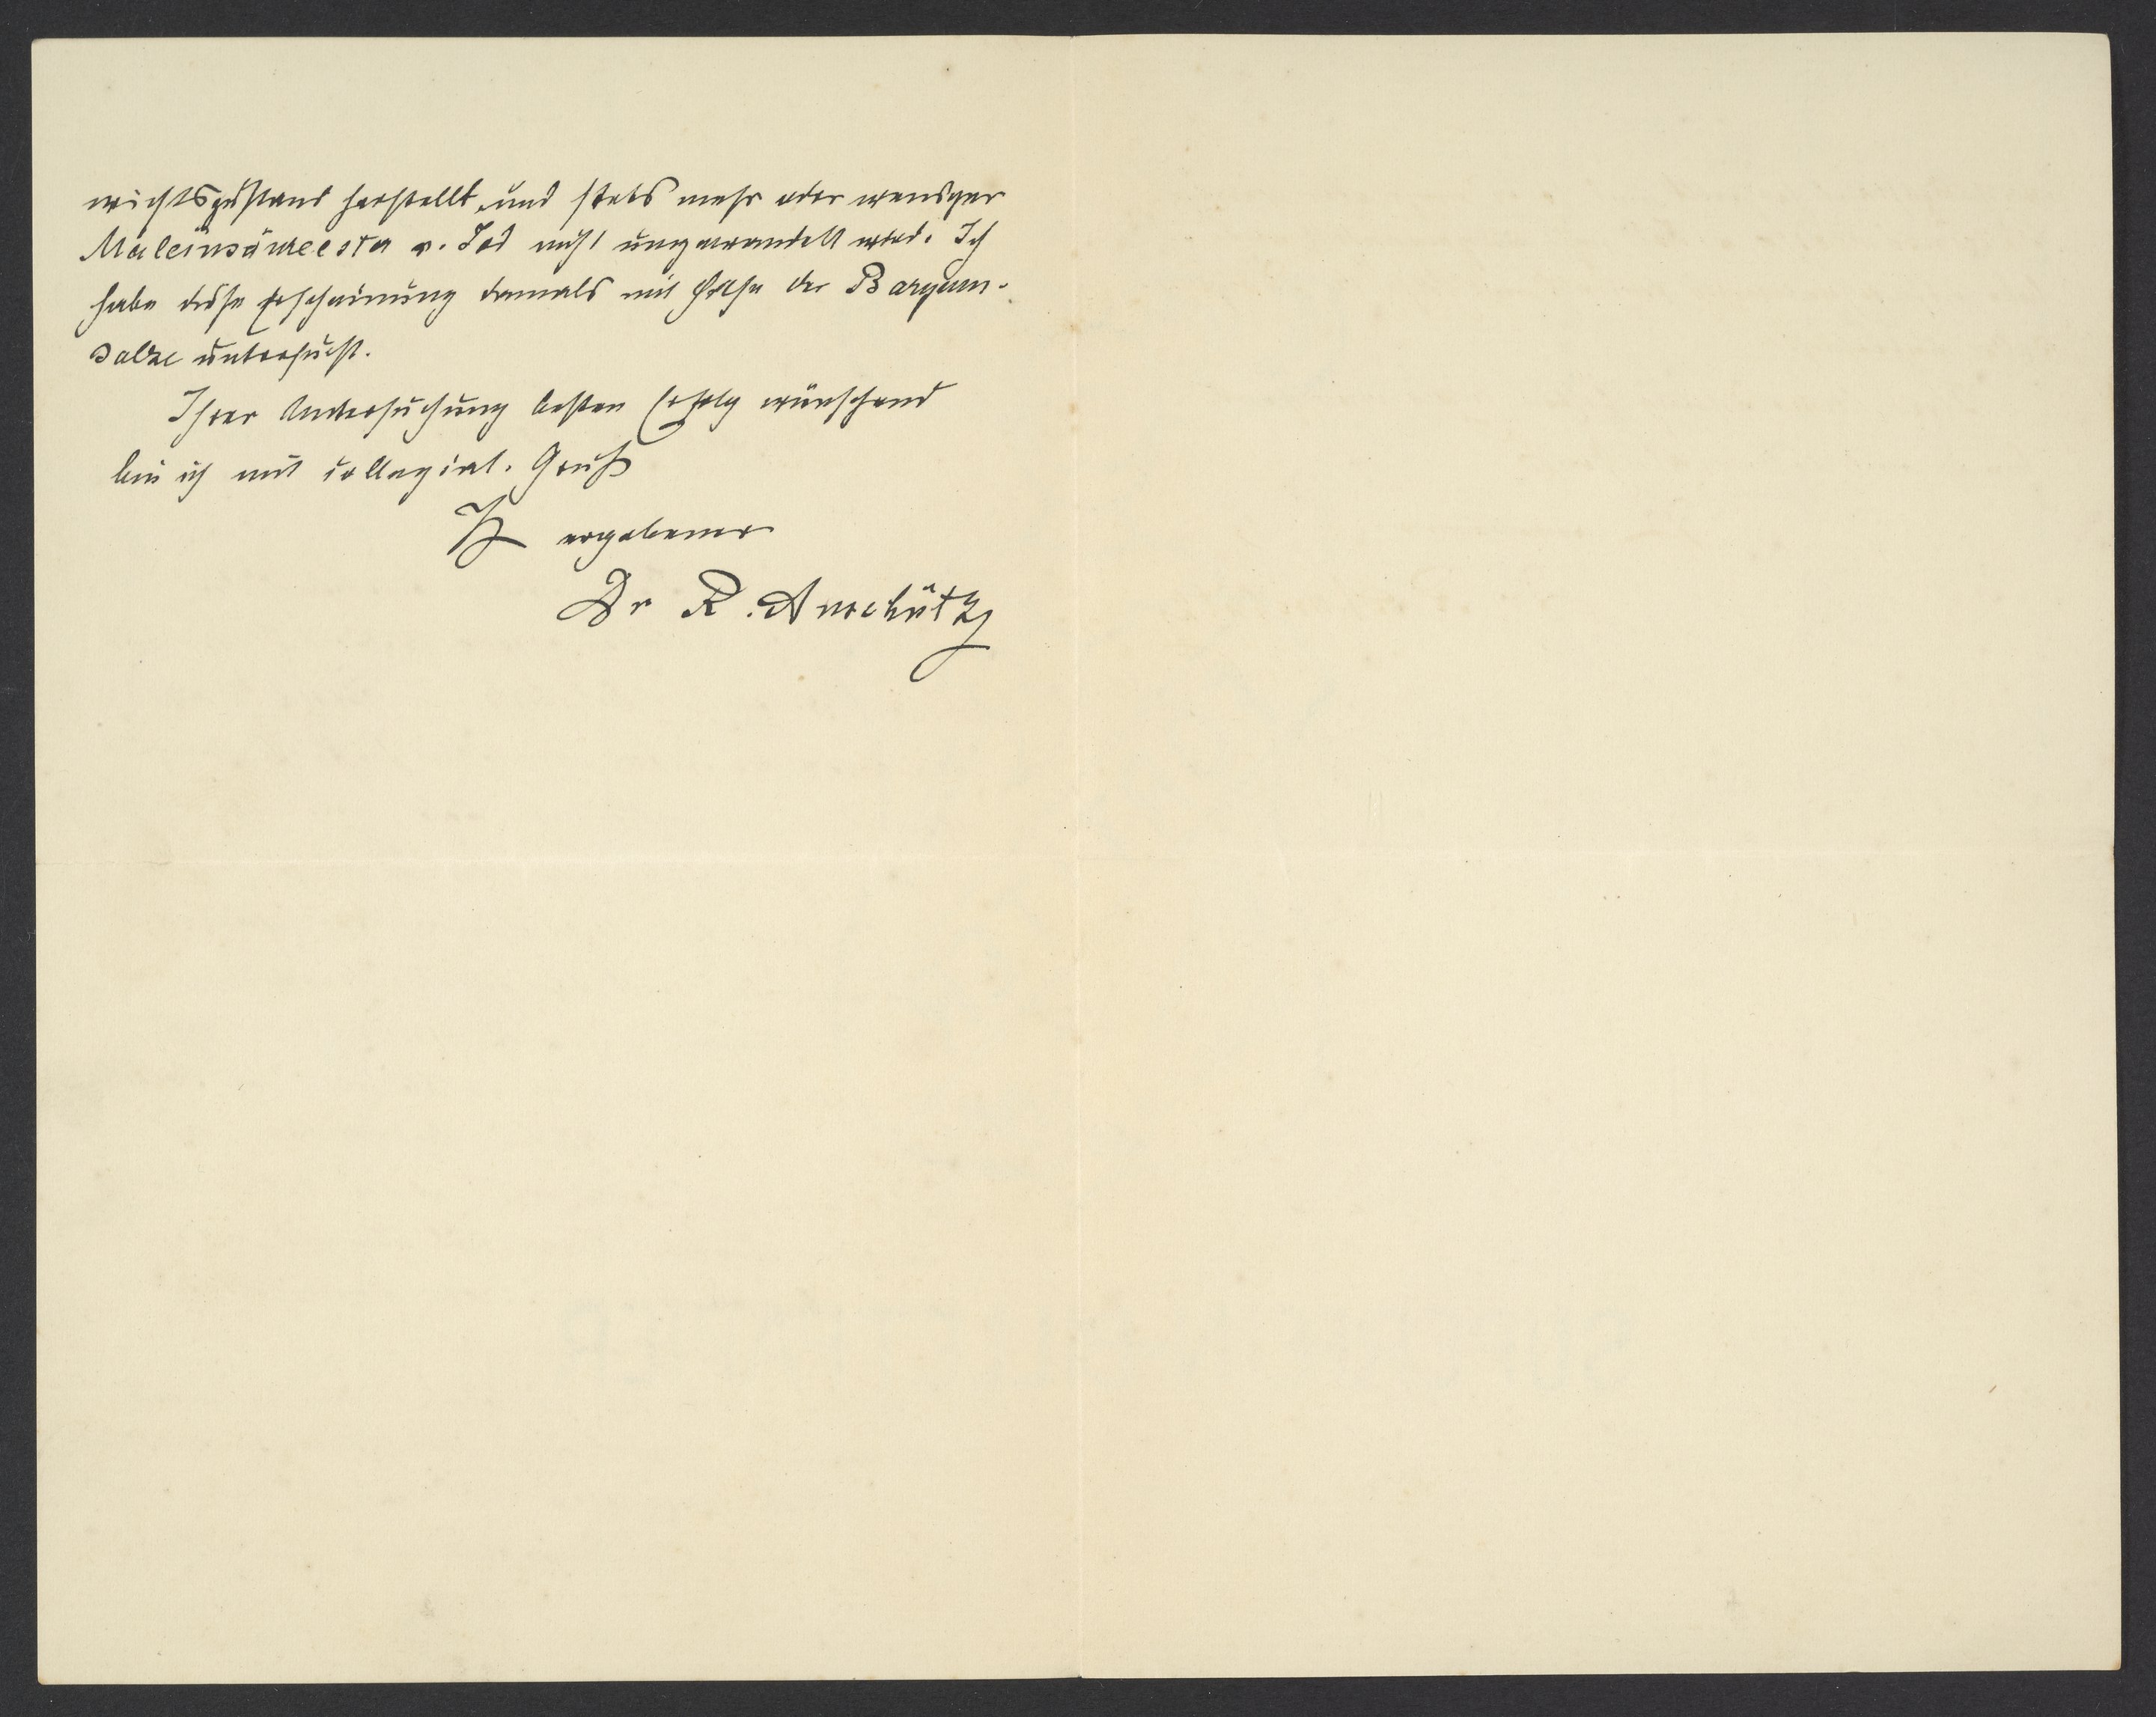 wichtszustand herstellt, und stets mehr oder weniger
Maleinsäureester v. Jod nicht umgewandelt wird. Ich
habe diese Erscheinung damals mit Hilfe der Baryum-
salze untersucht.
Ihrer Untersuchung besten Erfolg wünschend
bin ich mit collegial. Gruß
Ihr ergebener
Dr R. Anschütz